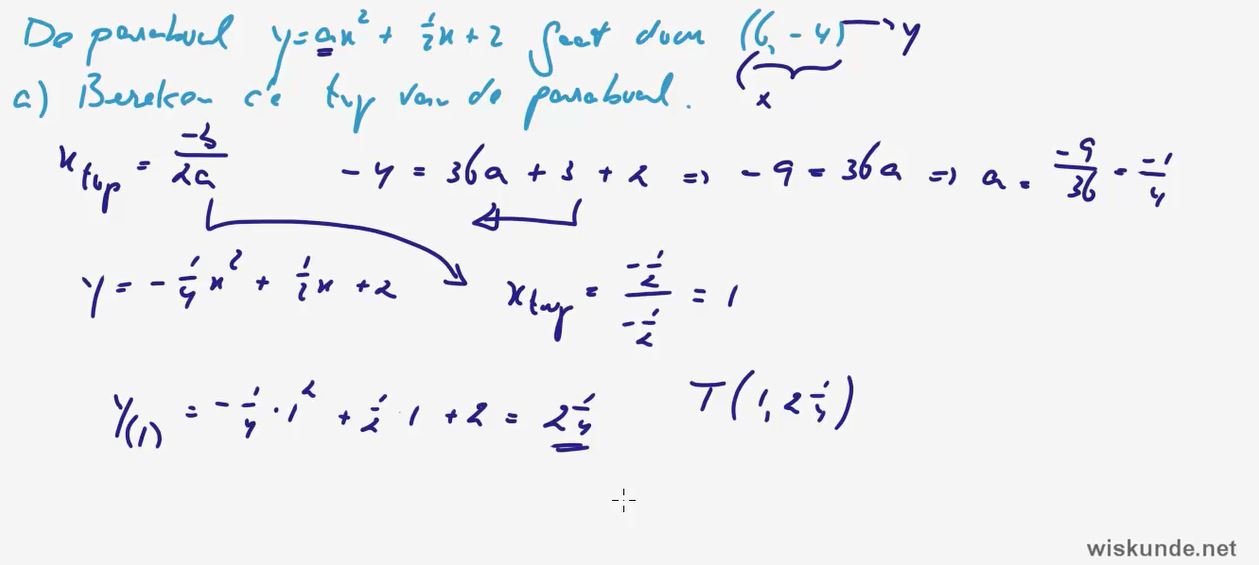 De parabool y = ax² + ½x + 2 gaat door (6, -4) → y
x
a) Bereken de top van de parabool.
x_top = -b/2a   -4 = 36a + 3 + 2 => -9 = 36a => a = -9/36 = -1/4
y = -¼x² + ½x + 2   x_top = -½/-½ = 1
y(1) = -¼ · 1² + ½ · 1 + 2 = 2¼   T(1, 2¼)
wiskunde.net